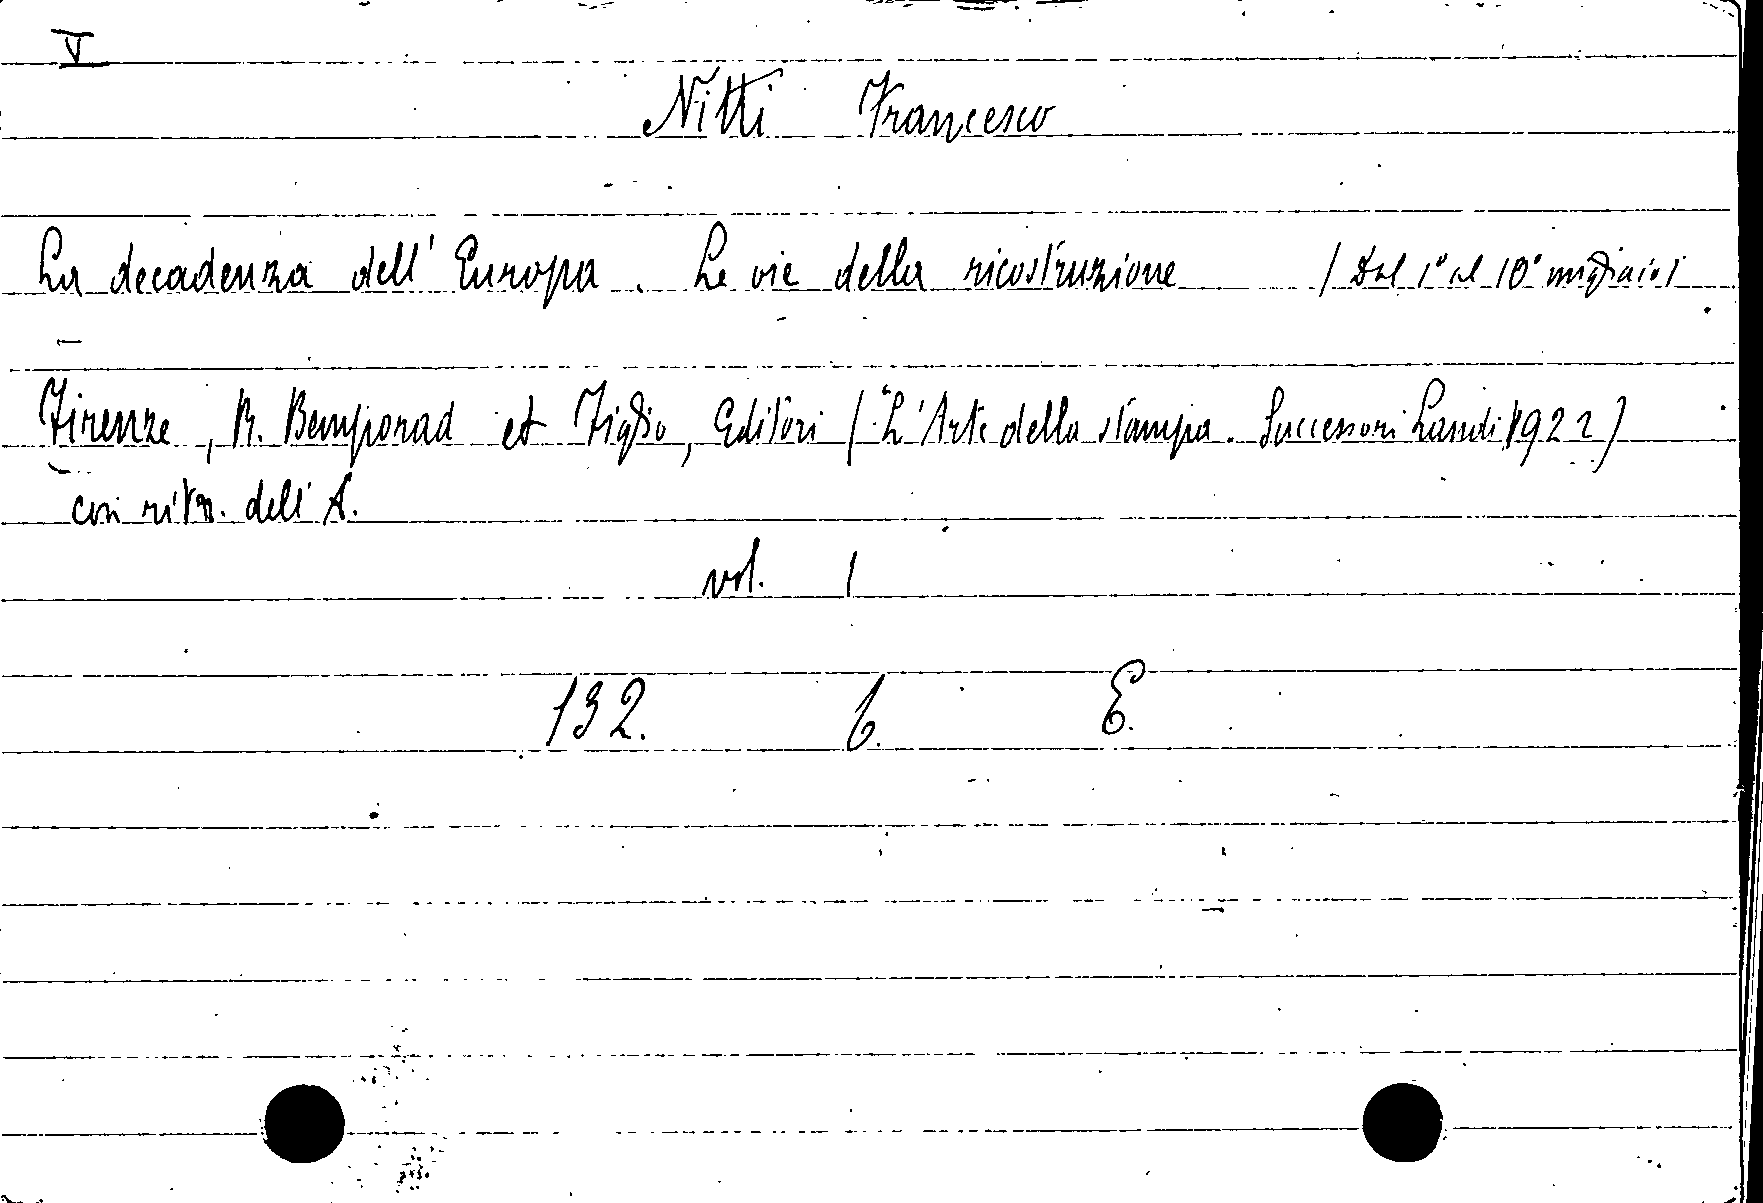 V
Nitti Francesco
La decadenza dell'Europa. Le vie della ricostruzione (Dal 1° al 10° migliaio)
Firenze, R. Bemporad et Figlio, Editori ("L'Arte della stampa. Successori Landi 1922)
con ritr. dell'A.
vol. 1
132. 6. E.